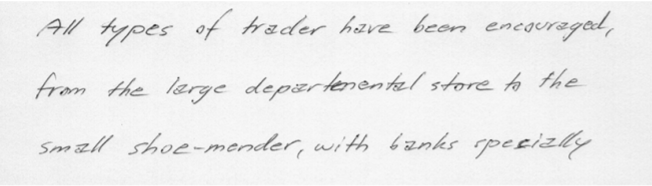 All types of trader have been encouraged,
from the large departmental store to the
small shoe-mender, with banks specially